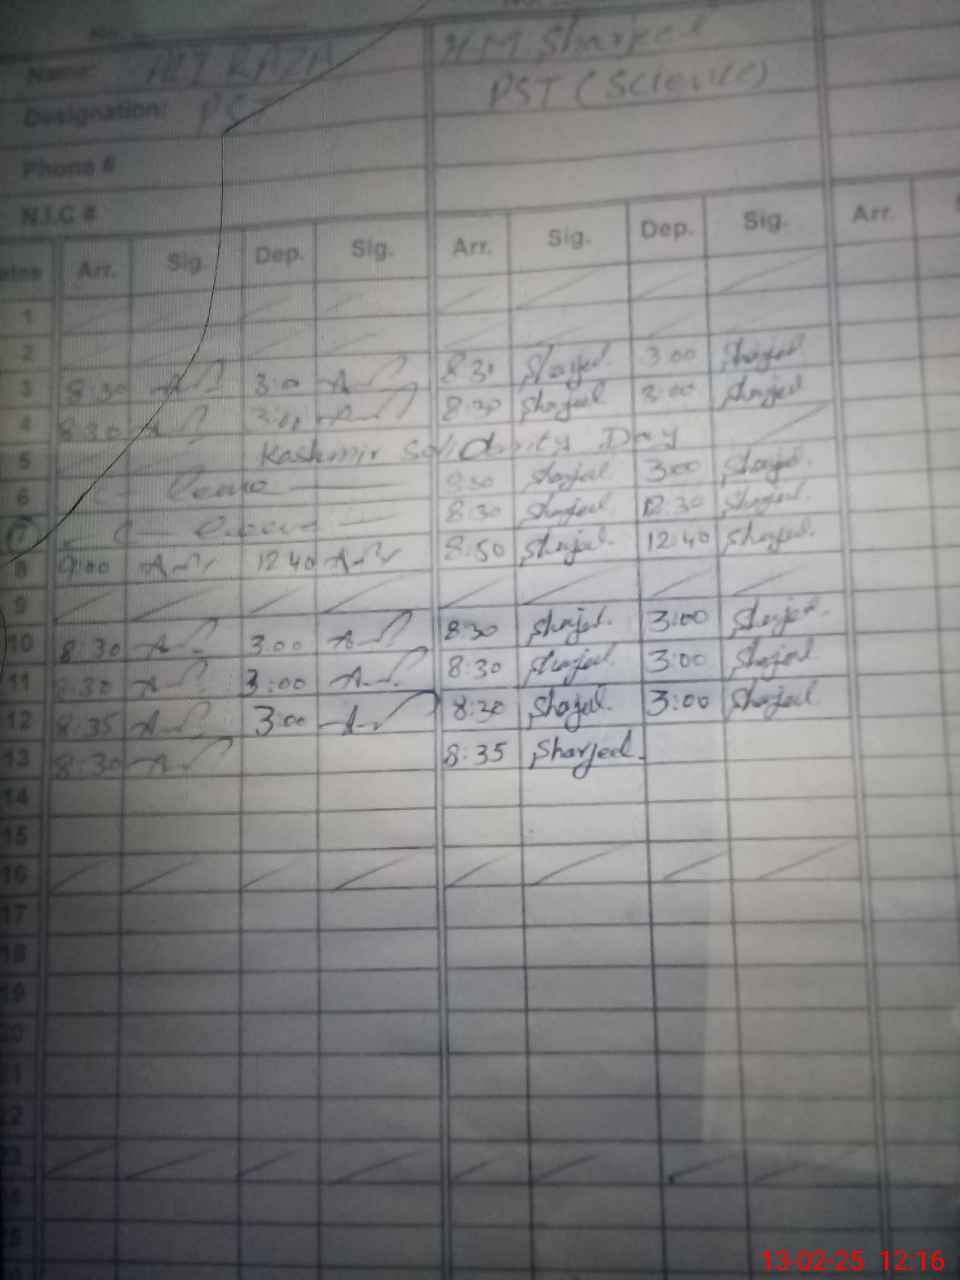 No.
Name: ALI RAZA H.M. Sharjeel
Designation: PST PST (Science)
Phone #
N.I.C #
Arr. Sig. Dep. Sig. Arr. Sig. Dep. Sig. Arr.
1
2
3 8:30 3:0 8:30 Sharjeel 3:00 Sharjeel
4 8:30 3:00 8:30 Sharjeel 3:00 Sharjeel
5 Kashmir Solidarity Day
6 Leave Sharjeel 3:00 Sharjeel
7 Leave 8:30 Sharjeel 12:30 Sharjeel
8 9:00 12:40 8:50 Sharjeel 12:40 Sharjeel
9
10 8:30 3:00 8:30 Sharjeel 3:00 Sharjeel
11 8:30 3:00 8:30 Sharjeel 3:00 Sharjeel
12 8:35 3:00 8:30 Sharjeel 3:00 Sharjeel
13 8:30 8:35 Sharjeel
14
15
16
17
18
19
13-02-25 12:16